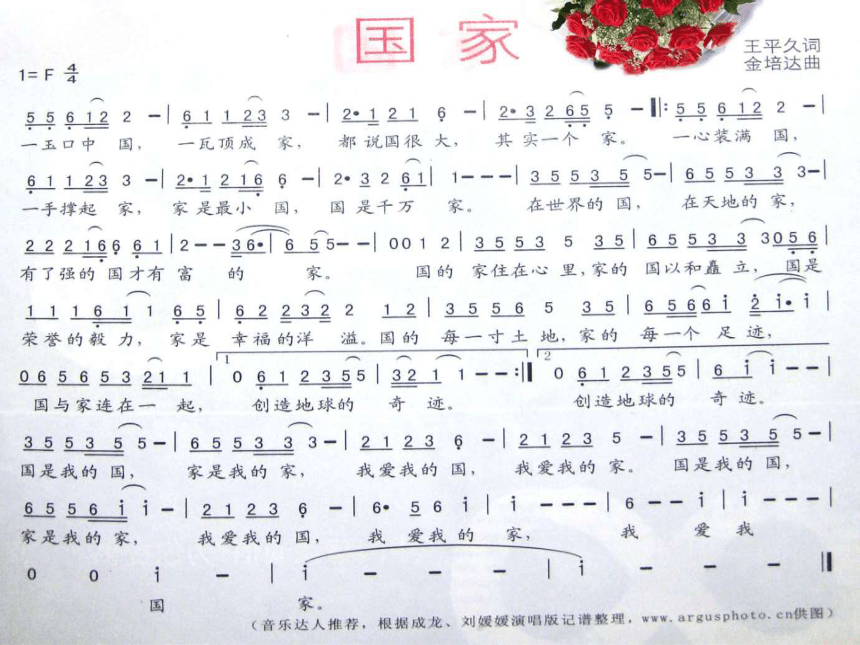 国家
王平久词
金培达曲
1= F 4/4
5 5 6 1 2 2 - | 6 1 1 2 3 3 - | 2• 1 2 1 6 - | 2• 3 2 6 5 5 - ‖: 5 5 6 1 2 2 - |
一玉口中 国, 一瓦顶成 家, 都 说国很 大, 其 实一个 家。 一心装满 国,
6 1 1 2 3 3 - | 2• 1 2 1 6 6 - | 2• 3 2 6 1 | 1 - - - | 3 5 5 3 5 5 - | 6 5 5 3 3 3 - |
一手撑起 家, 家 是最小 国, 国 是千万 家。 在世界的 国, 在天地的 家,
2 2 2 1 6 6 6 1 | 2 - - 3 6• | 6 5 5 - - | 0 0 1 2 | 3 5 5 3 5 3 5 | 6 5 5 3 3 3 0 5 6 |
有了强的 国才有 富 的 家。 国的 家住在心 里,家的 国以和矗 立, 国是
1 1 1 6 1 1 6 5 | 6 2 2 3 2 2 1 2 | 3 5 5 6 5 3 5 | 6 5 6 6 i 2 i• i |
荣誉的毅 力, 家是 幸福的洋 溢。国的 每一寸土 地,家的 每一个 足 迹,
0 6 5 6 5 3 2 1 1 | 1 0 6 1 2 3 5 5 | 3 2 1 1 - - :‖ 2 0 6 1 2 3 5 5 | 6 i i - - |
国与家连在一 起, 创造地球的 奇 迹。 创造地球的 奇 迹。
3 5 5 3 5 5 - | 6 5 5 3 3 3 - | 2 1 2 3 6 - | 2 1 2 3 5 - | 3 5 5 3 5 5 - |
国是我的 国, 家是我的 家, 我爱我的 国, 我爱我的 家。 国是我的 国,
6 5 5 6 i i - | 2 1 2 3 6 - | 6• 5 6 i | i - - - | 6 - - i | i - - - |
家是我的 家, 我爱我的 国, 我 爱我 的 家, 我 爱 我
0 0 i - | i - - - | i - - - ‖
国 家。
(音乐达人推荐,根据成龙、刘媛媛演唱版记谱整理,www.argusphoto.cn供图)